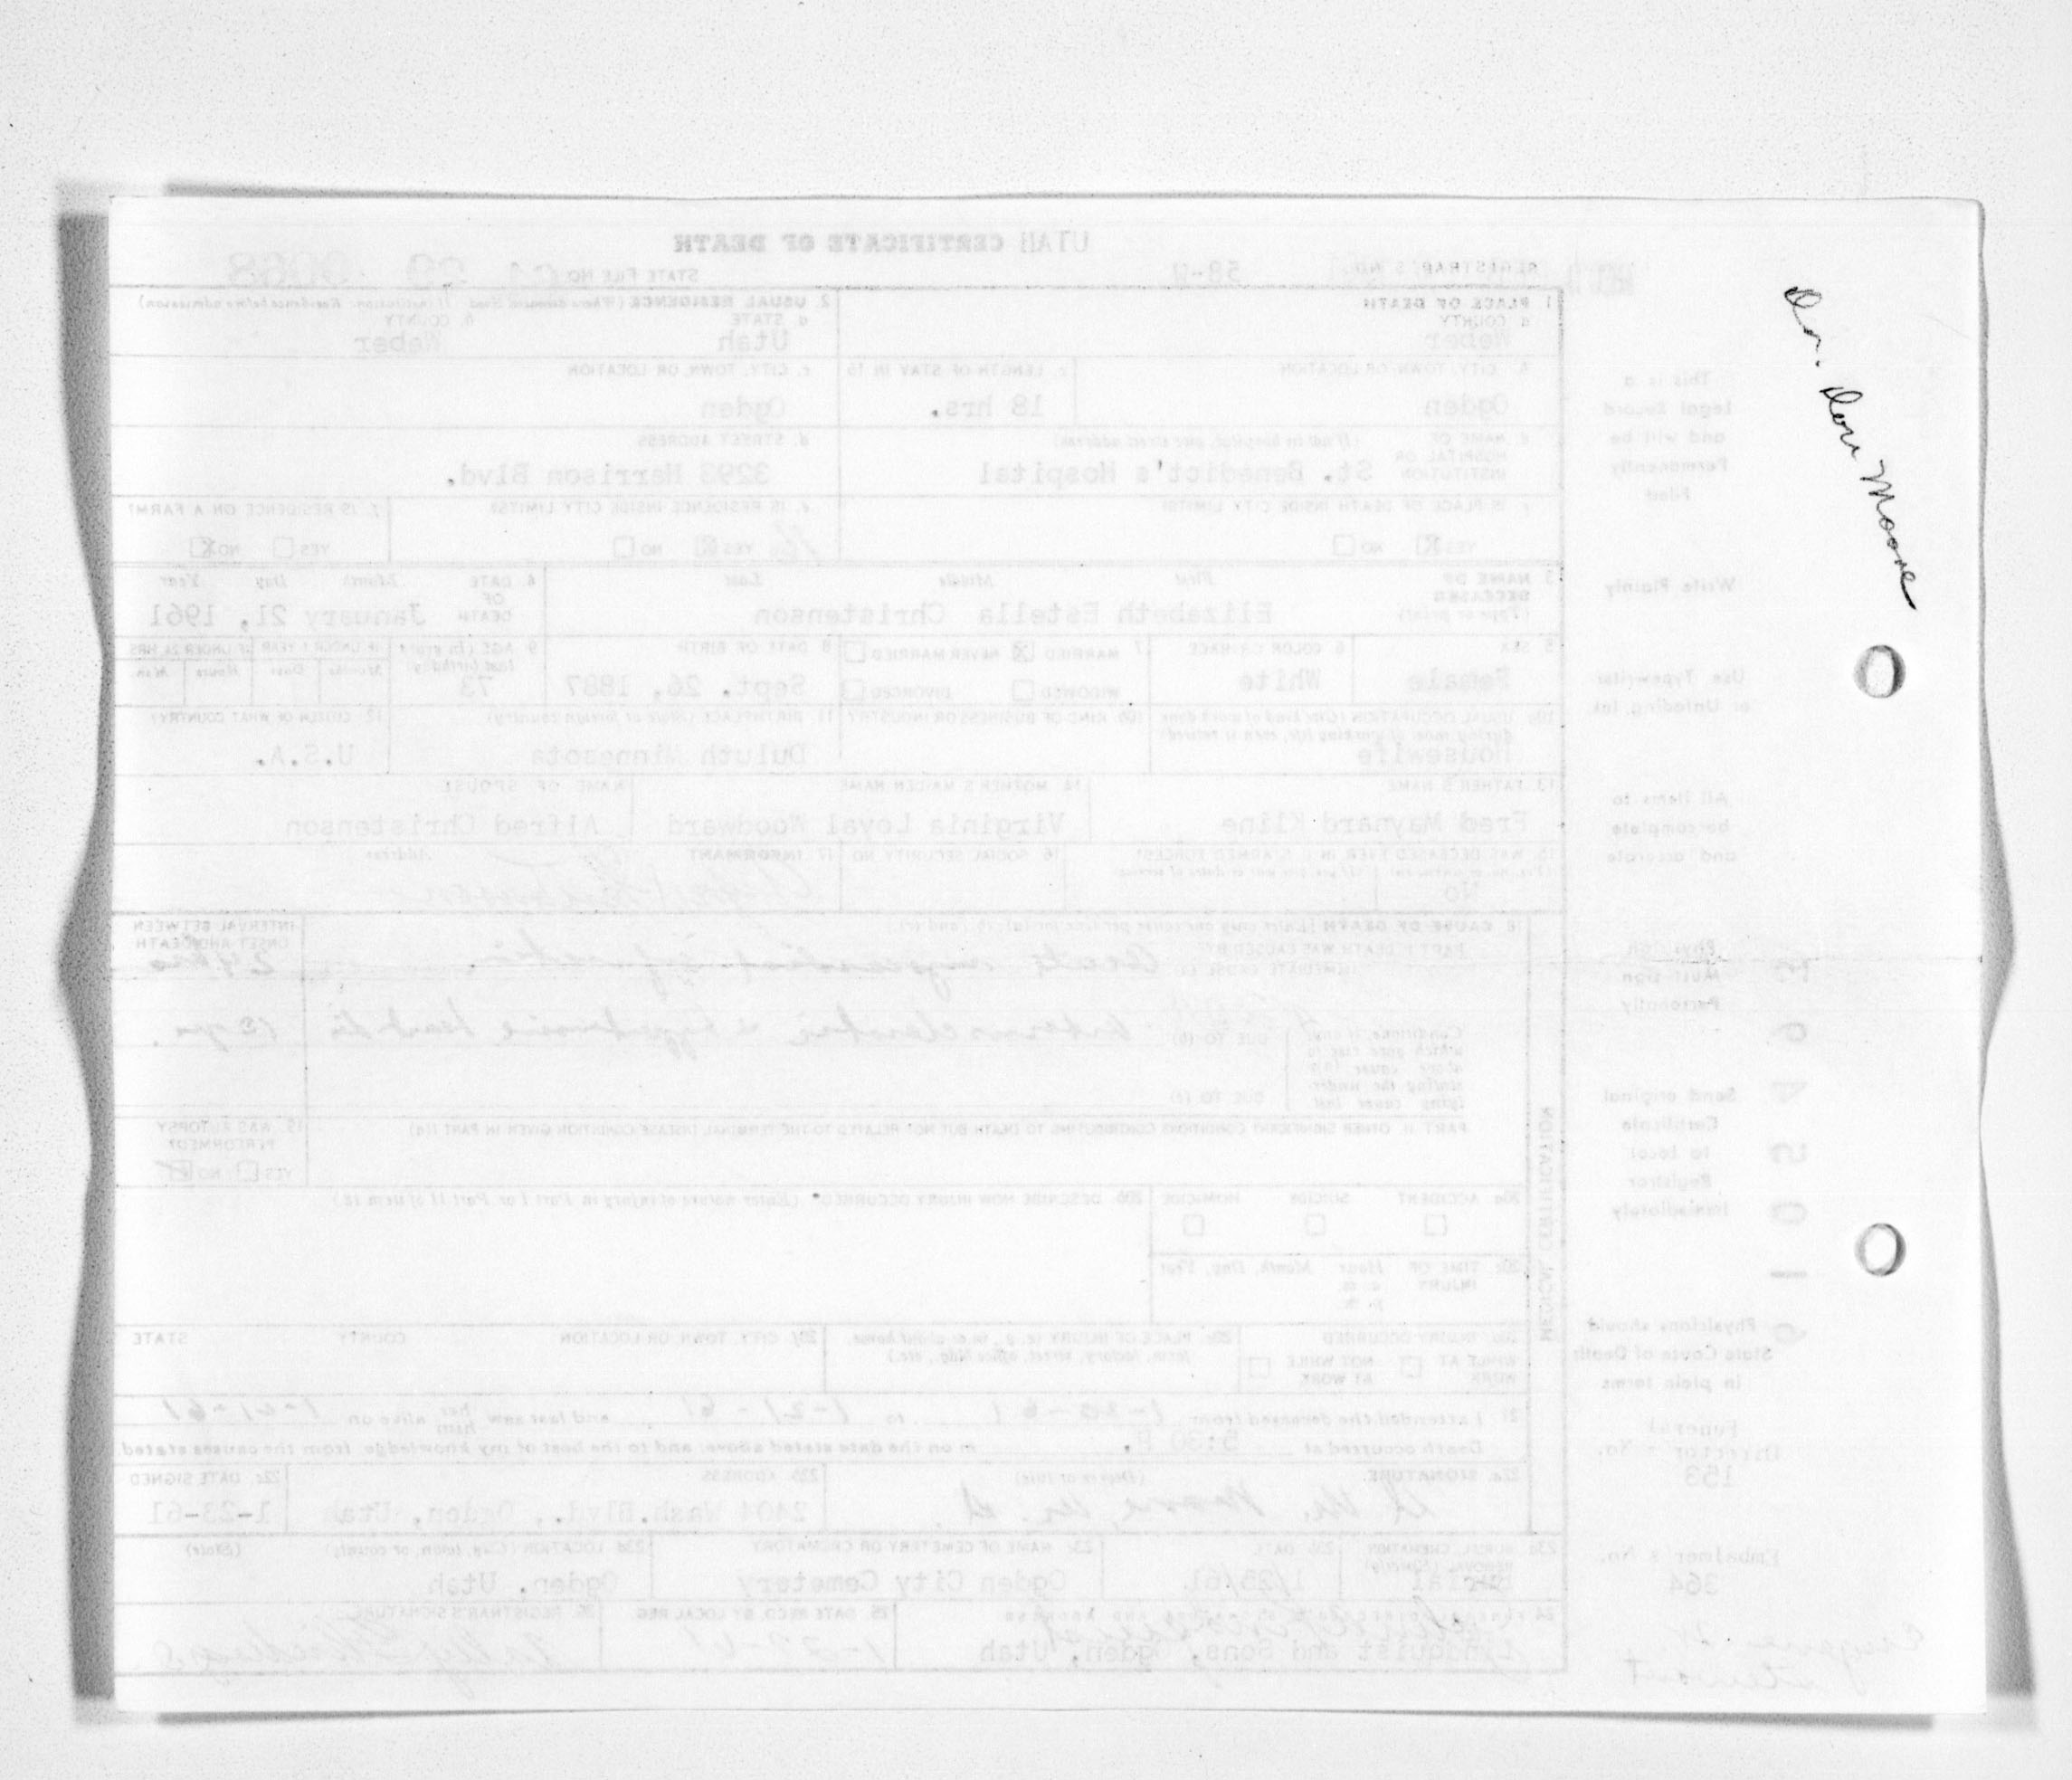 Dr. Don Moore
UTAH CERTIFICATE OF DEATH
REGISTRAR'S NO. 58-W
STATE FILE NO.
1. PLACE OF DEATH
a. COUNTY
Weber
2. USUAL RESIDENCE (Where deceased lived. If institution: Residence before admission)
a. STATE
Utah
b. COUNTY
Weber
b. CITY, TOWN, OR LOCATION
Ogden
c. LENGTH OF STAY IN 1b
18 hrs.
c. CITY, TOWN, OR LOCATION
Ogden
d. NAME OF HOSPITAL OR INSTITUTION (If not in hospital, give street address)
St. Benedict's Hospital
d. STREET ADDRESS
3293 Harrison Blvd.
e. IS PLACE OF DEATH INSIDE CITY LIMITS?
YES X NO
e. IS RESIDENCE INSIDE CITY LIMITS?
YES X NO
f. IS RESIDENCE ON A FARM?
YES NO X
3. NAME OF DECEASED (Type or print)
First Middle Last
Elizabeth Estella Christenson
4. DATE OF DEATH
Month Day Year
January 21, 1961
5. SEX
Female
6. COLOR OR RACE
White
7. MARRIED X NEVER MARRIED
WIDOWED DIVORCED
8. DATE OF BIRTH
Sept. 26, 1887
9. AGE (In years last birthday)
73
IF UNDER 1 YEAR
Months Days
IF UNDER 24 HRS.
Hours Min.
10a. USUAL OCCUPATION (Give kind of work done during most of working life, even if retired)
Housewife
10b. KIND OF BUSINESS OR INDUSTRY
11. BIRTHPLACE (State or foreign country)
Duluth Minnesota
12. CITIZEN OF WHAT COUNTRY?
U.S.A.
13. FATHER'S NAME
Fred Maynard Kline
14. MOTHER'S MAIDEN NAME
Virginia Loyal Woodward
NAME OF SPOUSE
Alfred Christenson
15. WAS DECEASED EVER IN U. S. ARMED FORCES?
(Yes, no, or unknown) (If yes, give war or dates of service)
No
16. SOCIAL SECURITY NO.
17. INFORMANT
Address
18. CAUSE OF DEATH [Enter only one cause per line for (a), (b), and (c).]
PART I. DEATH WAS CAUSED BY:
IMMEDIATE CAUSE (a) Acute myocardial infarction
INTERVAL BETWEEN ONSET AND DEATH
24 hrs
Conditions, if any, which gave rise to above cause (a), stating the underlying cause last.
DUE TO (b) Arteriosclerotic & hypertensive heart dis
10 yrs.
DUE TO (c)
PART II. OTHER SIGNIFICANT CONDITIONS CONTRIBUTING TO DEATH BUT NOT RELATED TO THE TERMINAL DISEASE CONDITION GIVEN IN PART I(a)
19. WAS AUTOPSY PERFORMED?
YES NO
20a. ACCIDENT SUICIDE HOMICIDE
20b. DESCRIBE HOW INJURY OCCURRED. (Enter nature of injury in Part I or Part II of item 18.)
20c. TIME OF INJURY
Hour Month, Day, Year
a. m.
p. m.
20d. INJURY OCCURRED
WHILE AT WORK NOT WHILE AT WORK
20e. PLACE OF INJURY (e.g., in or about home, farm, factory, street, office bldg., etc.)
20f. CITY, TOWN, OR LOCATION COUNTY STATE
21. I attended the deceased from 1-20-61 to 1-21-61 and last saw her him alive on 1-21-61
Death occurred at 5:30 P. m on the date stated above; and to the best of my knowledge, from the causes stated.
22a. SIGNATURE (Degree or title)
Moore, M. D.
22b. ADDRESS
2404 Wash.Blvd., Ogden, Utah
22c. DATE SIGNED
1-23-61
23a. BURIAL, CREMATION, REMOVAL (Specify)
Burial
23b. DATE
1/25/61
23c. NAME OF CEMETERY OR CREMATORY
Ogden City Cemetery
23d. LOCATION (City, town, or county) (State)
Ogden, Utah
Lindquist and Sons, Ogden, Utah
25. DATE RECD. BY LOCAL REG.
1-27-61
26. REGISTRAR'S SIGNATURE
MEDICAL CERTIFICATION
This is a
Legal Record
and will be
Permanently
Filed
Write Plainly
Use Typewriter
or Unfading Ink
All Items to
be complete
and accurate
Physician
Must sign
Personally
Send original
Certificate
to Local
Registrar
Immediately
Physicians should
State Cause of Death
in plain terms
Funeral
Director's No.
153
Embalmer's No.
364